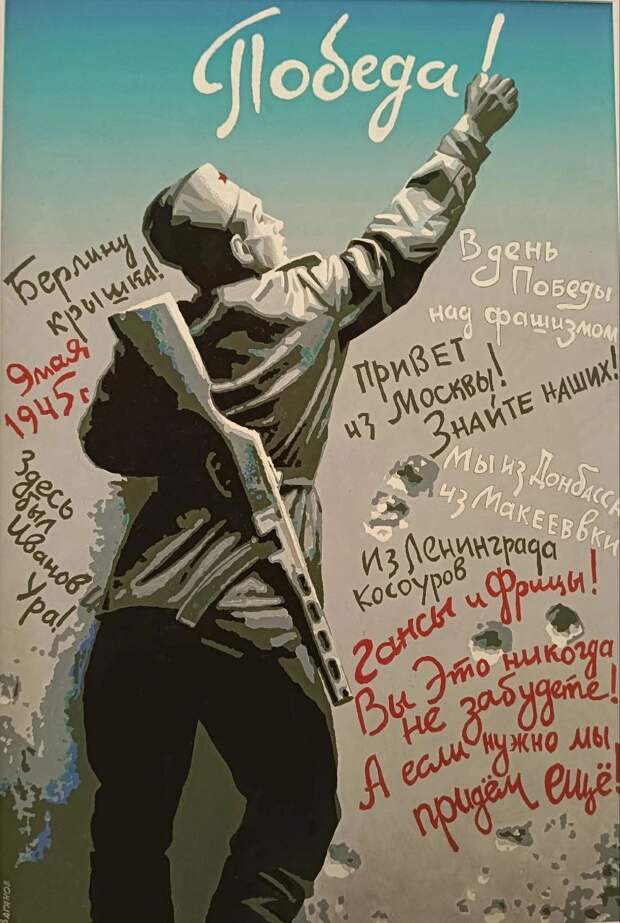 Победа!
Берлину
крышка!
9 мая
1945 г
Здесь
был
Иванов
Ура!
В день
Победы
над фашизмом
Привет
из Москвы!
Знайте наших!
Мы из Донбасса
из Макеевки
из Ленинграда
Косоуров
Гансы и Фрицы!
Вы Это никогда
не забудете!
А если нужно мы
придём ещё!